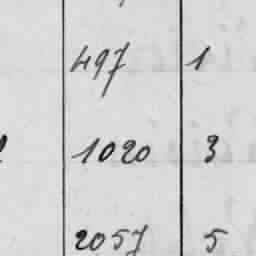 497 1
1020 3
2057 5